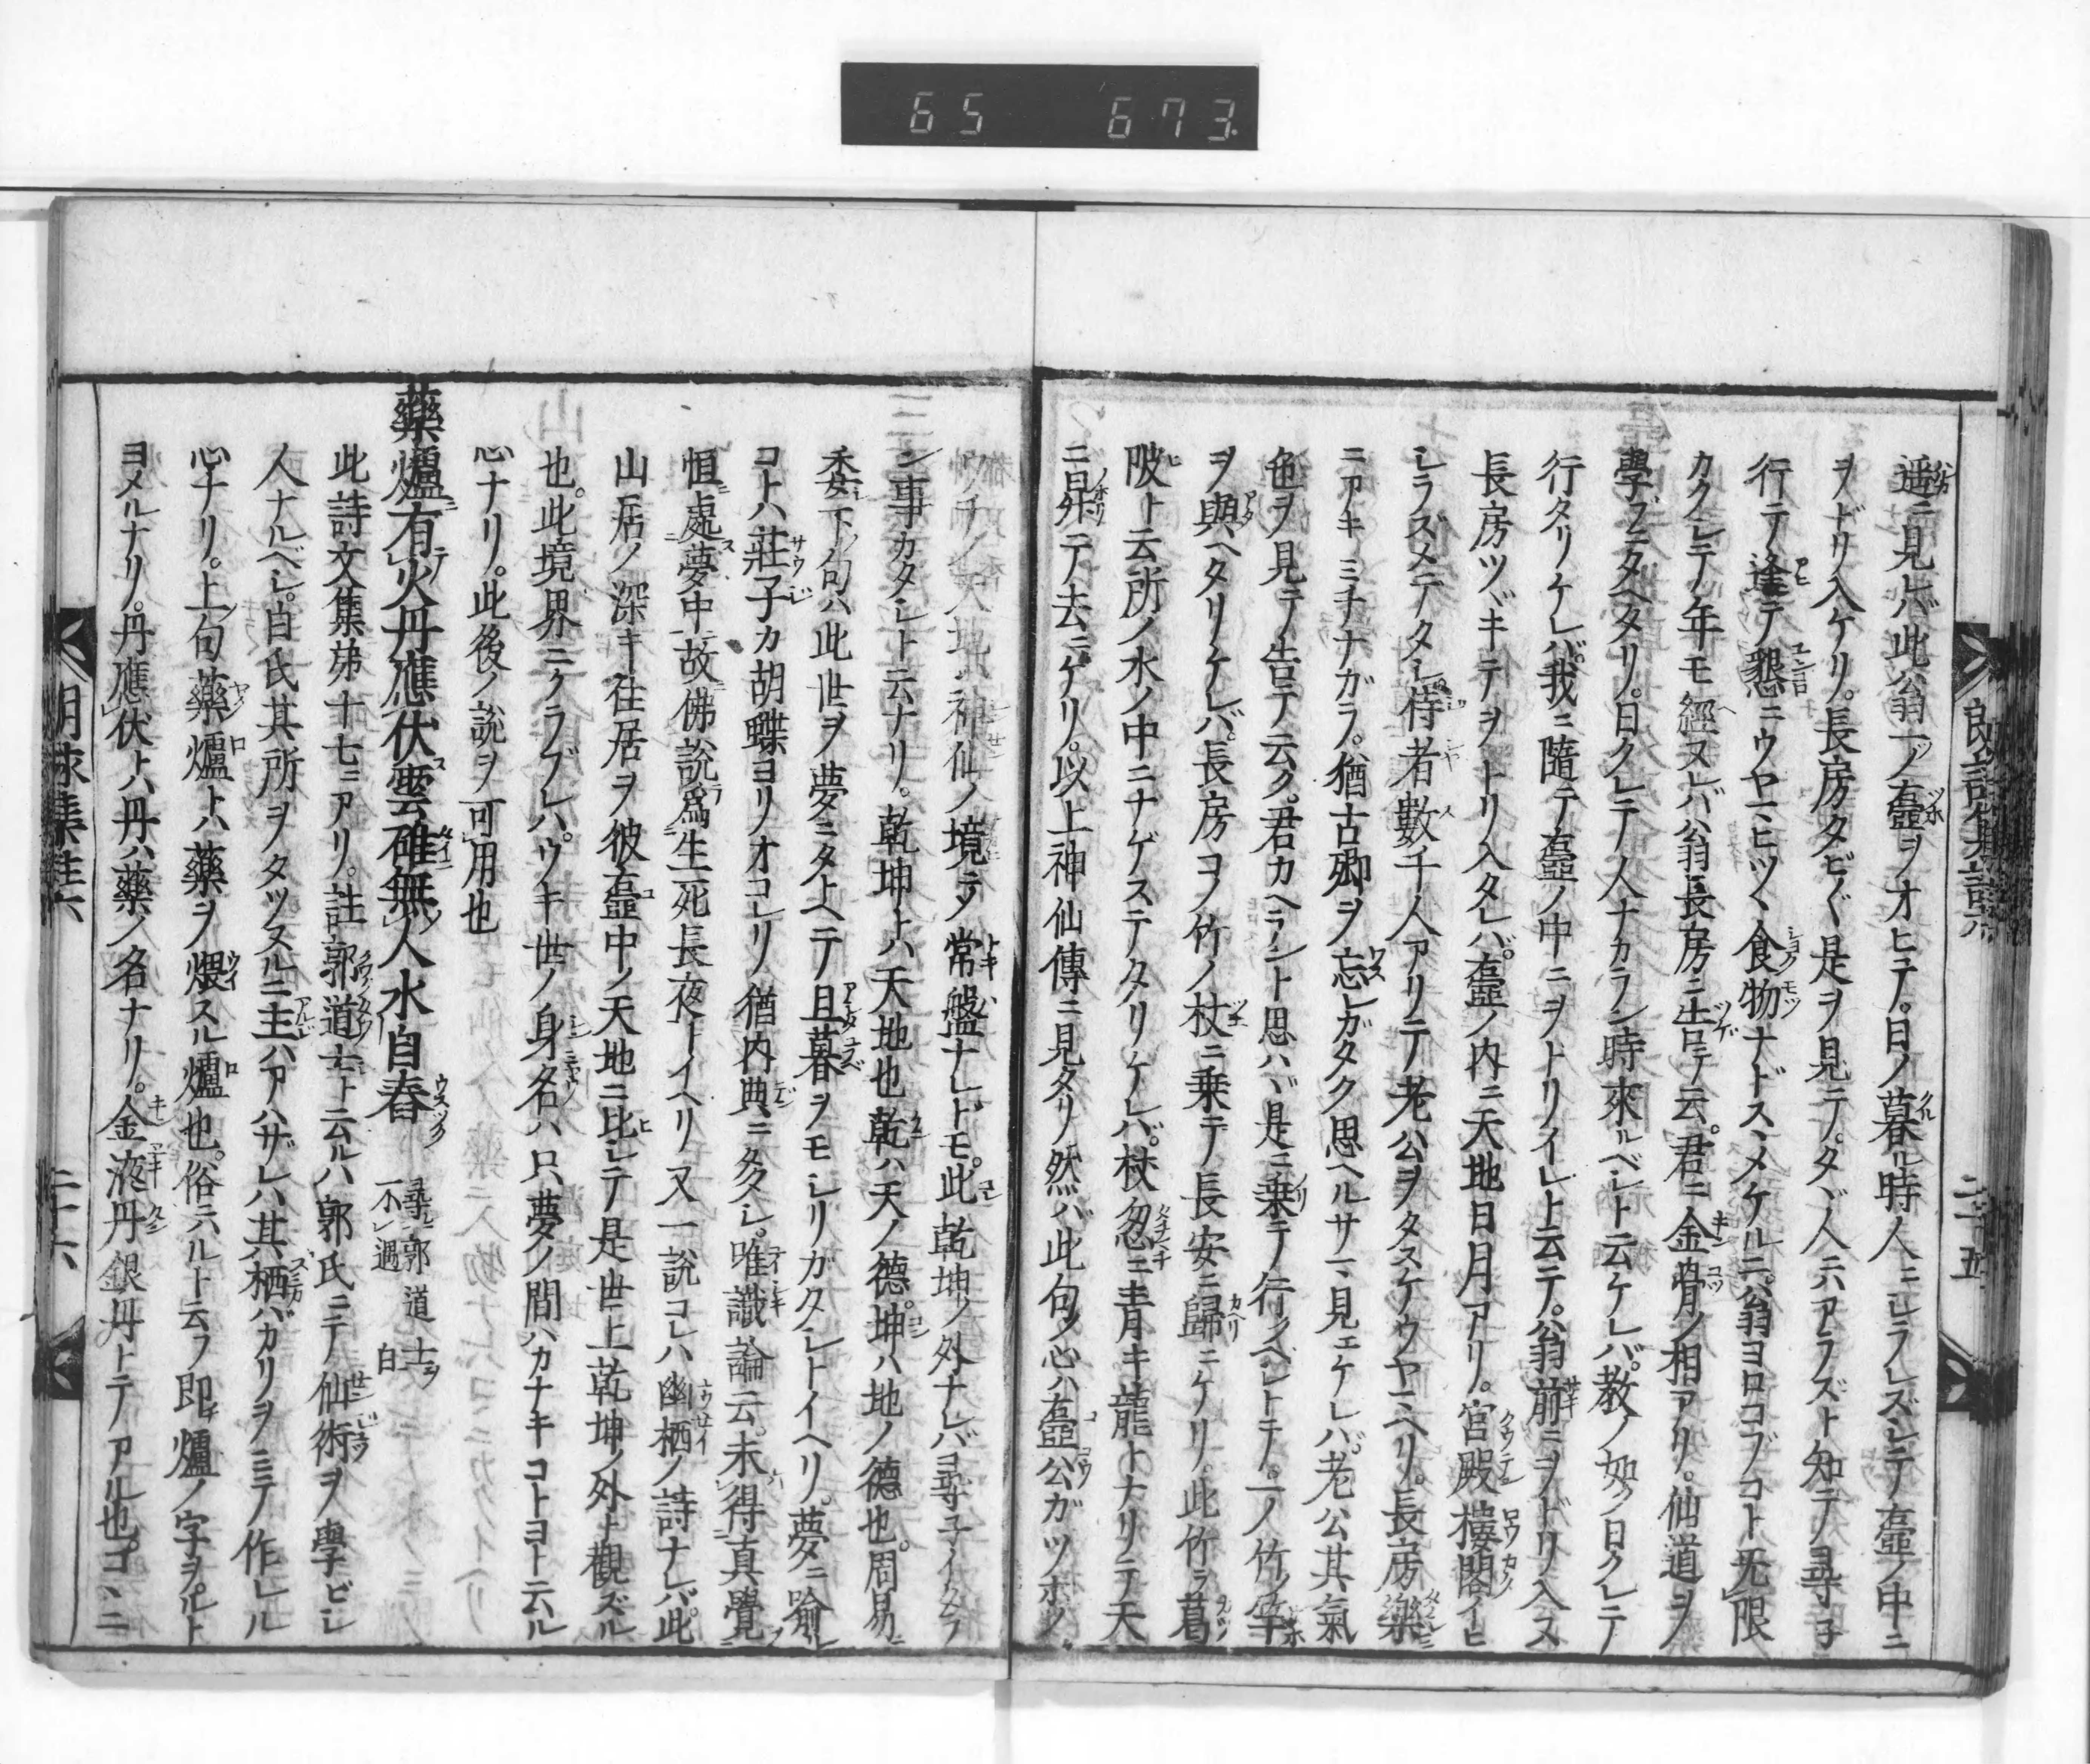 65 673
遥ニ見レバ此翁一ノ壷ヲオヒテ。日ノ暮ル時人ニシラレズシテ壷ノ中ニ
ヲドリ入ケリ。長房タビ〱是ヲ見テ。タヾ人ニハアラズト知テ尋子
行テ逢テ懇ニウヤマヒツヽ食物ナドスヽメケルニ。翁ヨロコブコト无限
カクシテ年モ經ヌレバ翁長房ニ告テ云。君ニ金骨ノ相アリ。仙道ヲ
學ブニタヘタリ。日クレテ人ナカラン時來ルベシト云ケレバ。教ノ如ク日クレテ
行タリケレバ。我ニ隨テ壷ノ中ニヲドリイレト云テ。翁前ニヲドリ入ヌ
長房ツヾキテヲトリ入タレバ。壷ノ内ニ天地日月アリ。宮殿樓閣イヒ
シラズメテタシ。侍者數千人アリテ老公ヲタスケウヤマヘリ。長房樂
ニアキミチナガラ。猶古郷ヲ忘レガタク思ヘルサマ見エケレバ。老公其氣
色ヲ見テ告テ云ク。君カヘラント思ハヾ是ニ乗テ行ベシトテ。一ノ竹ノ竿
ヲ與ヘタリケレバ。長房ヨノ竹ノ杖ニ乗テ長安ニ歸ニケリ。此竹ヲ葛
陂ト云所ノ水ノ中ニナゲステタリケレバ。杖忽ニ青キ龍トナリテ天
ニ昇テ去ニケリ。以上神仙傳ニ見タリ然バ此句ノ心ハ壷公ガツボノ
朗詠集註六 二十五
ウチノ天地ハ神仙ノ境テ常盤ナレドモ。此乾坤ノ外ナレバ尋子イタラ
ン事カタシト云ナリ。乾坤トハ天地也乾ハ天ノ德。坤ハ地ノ德也。周易ニ
委下ノ句ハ此世ヲ夢ニタトヘテ旦暮ヲモシリガタシトイヘリ。夢ニ喩ル
コトハ莊子カ胡蝶ヨリオコレリ猶内典ニ多シ。唯識論云。未得真覺
恒處夢中故佛説爲生死長夜トイヘリ又一説コレハ幽栖ノ詩ナレバ。此
山居ノ深キ住居ヲ彼壷中ノ天地ニ比シテ是世上乾坤ノ外ト觀ズル
也。此境界ニクラブレハ。ウキ世ノ身名ハ只夢ノ間ハカナキコトヨト云ル
心ナリ。此後ノ説ヲ可用也
藥爐有火丹應伏雲碓無人水自舂 尋郭道士不遇 白
此詩文集第十七ニアリ。註郭道士ト云ルハ郭氏ニテ仙術ヲ學ビシ
人ナルベシ。白氏其所ヲタツヌルニ主ハアハザレハ其栖バカリヲミテ作レル
心ナリ。上句藥爐トハ藥ヲ煨スル爐也。俗ニハルト云フ即チ爐ノ字ヲルト
ヨメルナリ。丹應伏トハ丹ハ藥ノ名ナリ。金液丹銀丹トテアル也。コヽニ
朗詠集註六 二十六